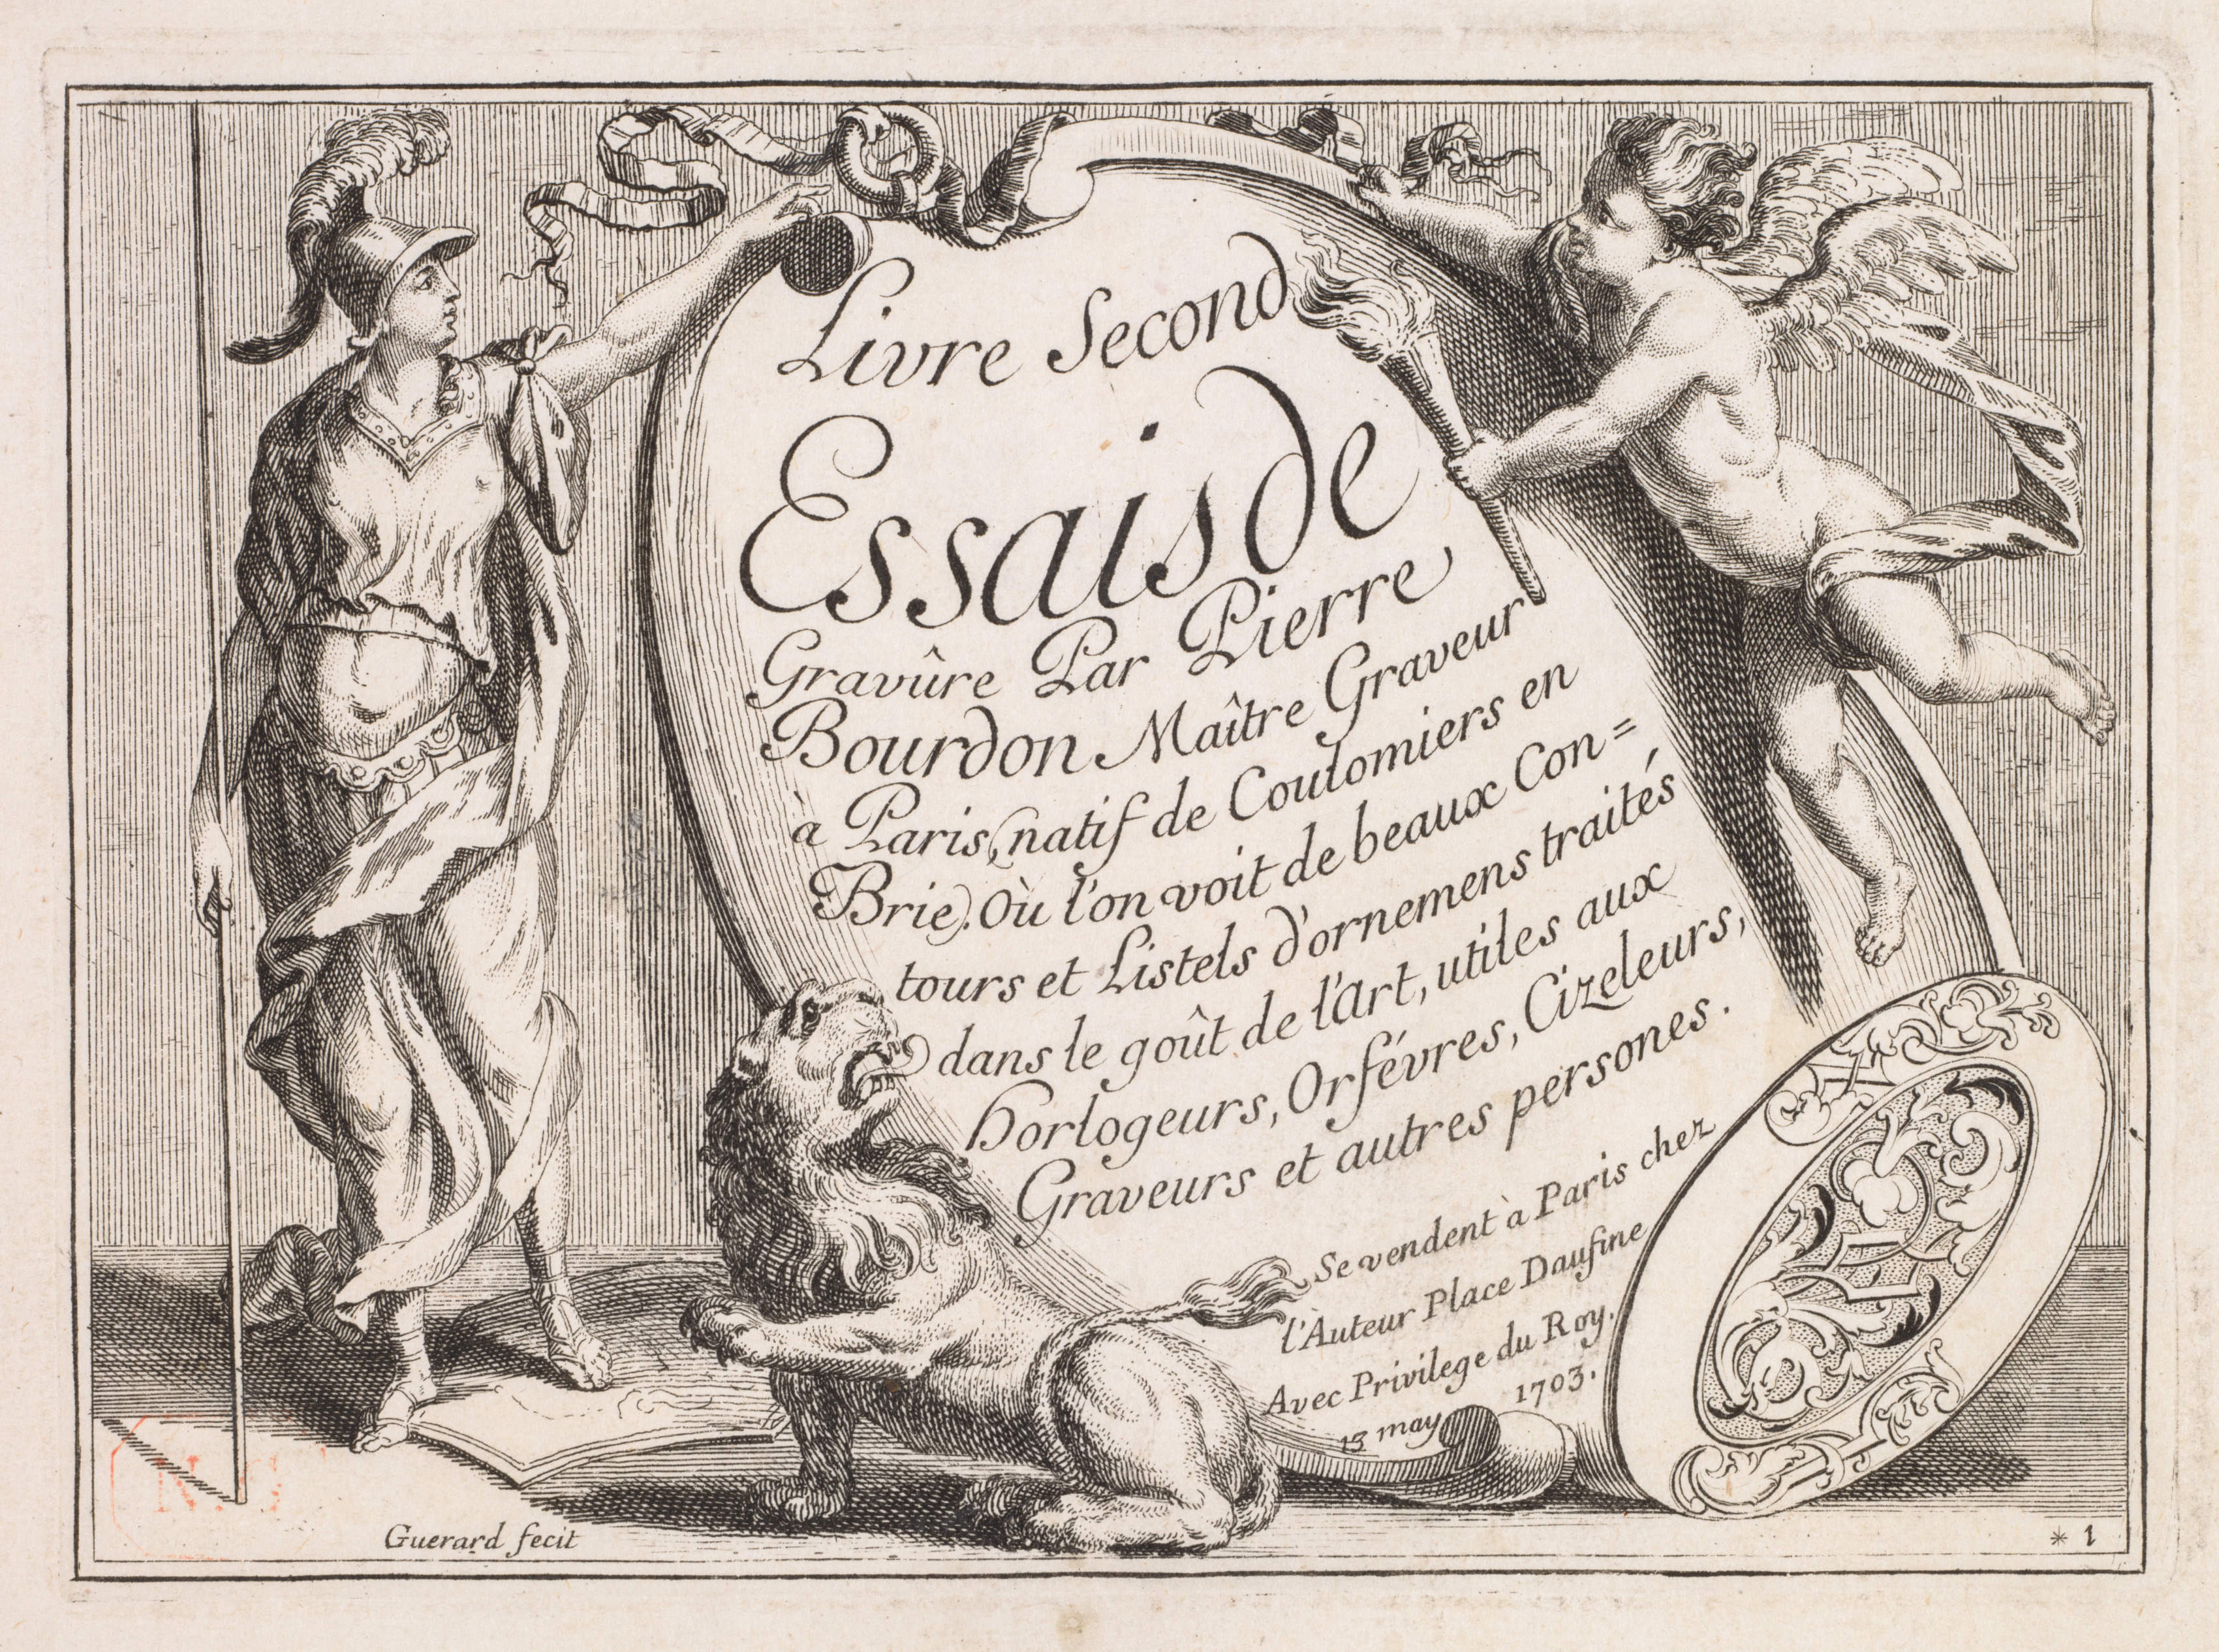 Livre Second
Essais de
Gravûre Par Pierre
Bourdon Maître Graveur
à Paris (natif de Coulomiers en
Brie). Où l'on voit de beaux Con=
tours et Listels d'ornemens traités
dans le goût de l'Art, utiles aux
Horlogeurs, Orfévres, Cizeleurs,
Graveurs et autres persones.
Se vendent à Paris chez
l'Auteur Place Daufine
Avec Privilege du Roy.
13 may 1703.
Guerard fecit
* 1
N. G